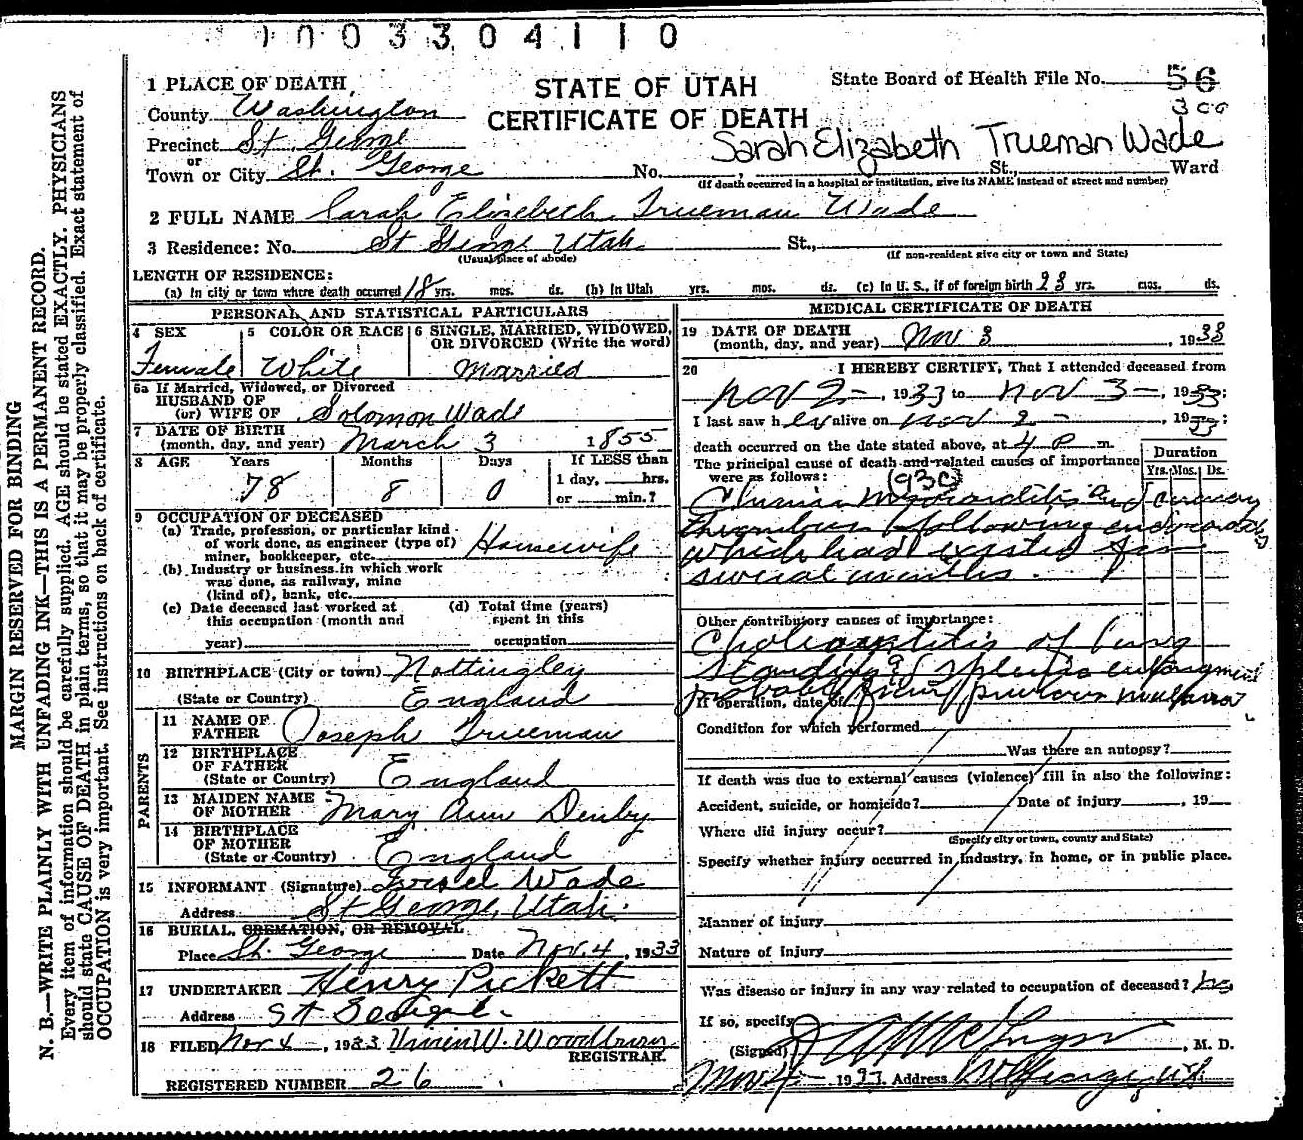 0003304110
STATE OF UTAH
CERTIFICATE OF DEATH
State Board of Health File No. 56
300
Sarah Elizabeth Trueman Wade
1 PLACE OF DEATH
County Washington
Precinct St George
or
Town or City St. George No. St., Ward
(If death occurred in a hospital or institution, give its NAME instead of street and number)
2 FULL NAME Sarah Elizebeth Trueman Wade
3 Residence: No. St George Utah St.,
(Usual place of abode) (If non-resident give city or town and State)
LENGTH OF RESIDENCE:
(a) In city or town where death occurred 18 yrs. mos. ds. (b) In Utah yrs. mos. ds. (c) In U. S., if of foreign birth 23 yrs. mos. ds.
PERSONAL AND STATISTICAL PARTICULARS
4 SEX 5 COLOR OR RACE 6 SINGLE, MARRIED, WIDOWED, OR DIVORCED (Write the word)
Female White Married
6a If Married, Widowed, or Divorced
HUSBAND OF
(or) WIFE OF Solomon Wade
7 DATE OF BIRTH
(month, day, and year) March 3 1855
8 AGE Years Months Days If LESS than
78 8 0 1 day, hrs.
or min.?
9 OCCUPATION OF DECEASED
(a) Trade, profession, or particular kind of work done, as engineer (type of) miner, bookkeeper, etc. Housewife
(b) Industry or business in which work was done, as railway, mine (kind of), bank, etc.
(c) Date deceased last worked at this occupation (month and year) (d) Total time (years) spent in this occupation
10 BIRTHPLACE (City or town) Nottingley
(State or Country) England
PARENTS
11 NAME OF FATHER Joseph Trueman
12 BIRTHPLACE OF FATHER
(State or Country) England
13 MAIDEN NAME OF MOTHER Mary Ann Denby
14 BIRTHPLACE OF MOTHER
(State or Country) England
15 INFORMANT (Signature) Wade
Address St George, Utah.
16 BURIAL, CREMATION, OR REMOVAL
Place St. George Date Nov. 4, 1933
17 UNDERTAKER Henry Pickett
Address St George.
18 FILED Nov 4, 1933 Vivien W. Woodbury
REGISTRAR.
REGISTERED NUMBER 26
MEDICAL CERTIFICATE OF DEATH
19 DATE OF DEATH
(month, day, and year) Nov 3, 1933
20 I HEREBY CERTIFY, That I attended deceased from
Nov 2, 1933 to Nov 3, 1933:
I last saw her alive on Nov 2, 1933:
death occurred on the date stated above, at 4 P m.
The principal cause of death and related causes of importance
were as follows: (93c)
Duration
Yrs. Mos. Ds.
Chronic Myocarditis and coronary
thrombus following
which had existed for
several months.
Other contributory causes of importance:
of long
standing & splenic enlargement
probably from previous malaria.
If operation, date of
Condition for which performed
Was there an autopsy?
If death was due to external causes (violence) fill in also the following:
Accident, suicide, or homicide? Date of injury, 19
Where did injury occur?
(Specify city or town, county and State)
Specify whether injury occurred in industry, in home, or in public place.
Manner of injury
Nature of injury
Was disease or injury in any way related to occupation of deceased? no
If so, specify
(Signed), M. D.
Nov 4 1933. Address St George, Ut.
MARGIN RESERVED FOR BINDING
N. B.—WRITE PLAINLY WITH UNFADING INK—THIS IS A PERMANENT RECORD.
Every item of information should be carefully supplied. AGE should be stated EXACTLY. PHYSICIANS
should state CAUSE OF DEATH in plain terms, so that it may be properly classified. Exact statement of
OCCUPATION is very important. See instructions on back of certificate.